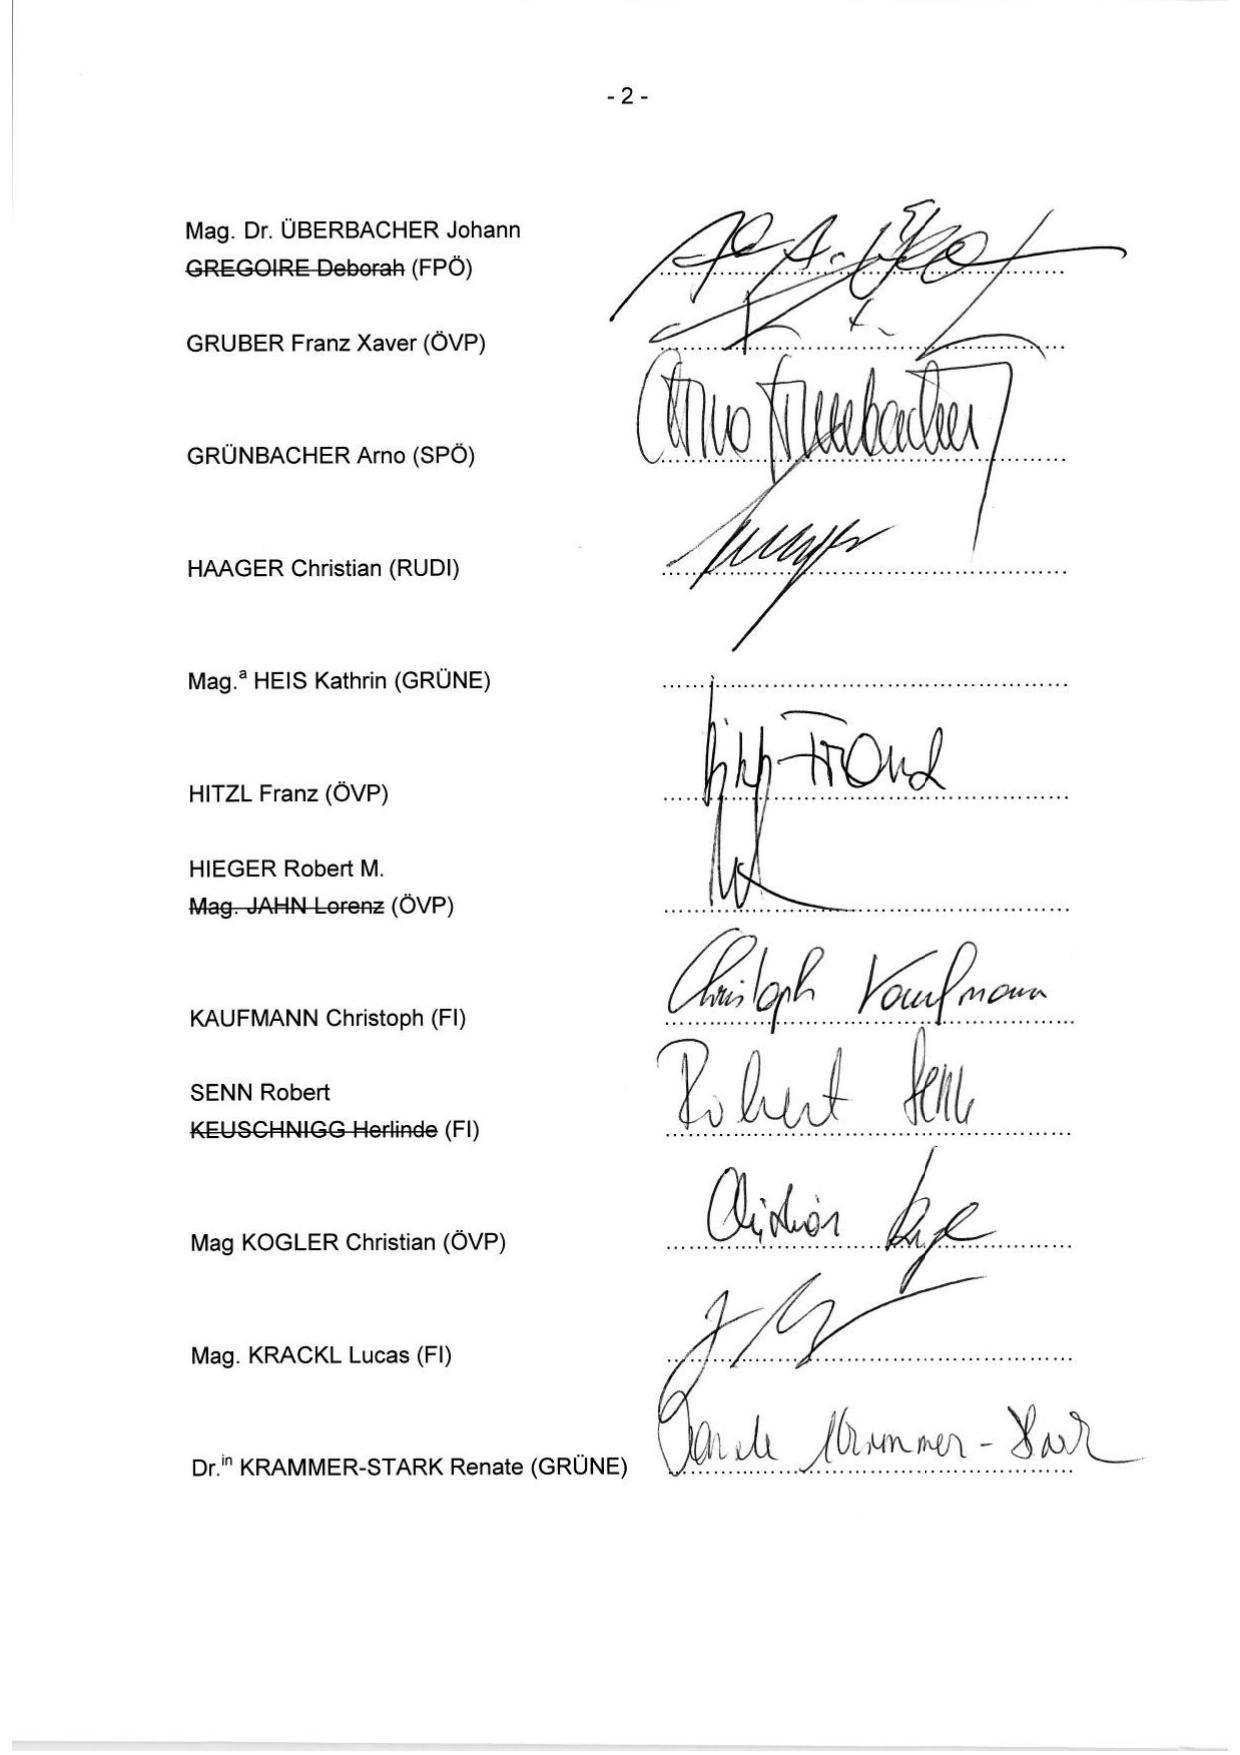 - 2 -
Mag. Dr. ÜBERBACHER Johann
GREGOIRE Deborah (FPÖ)
GRUBER Franz Xaver (ÖVP)
GRÜNBACHER Arno (SPÖ)
Arno Gruenbacher
HAAGER Christian (RUDI)
Mag.ª HEIS Kathrin (GRÜNE)
HITZL Franz (ÖVP)
Hitzl Franz
HIEGER Robert M.
Mag. JAHN Lorenz (ÖVP)
KAUFMANN Christoph (FI)
Christoph Kaufmann
SENN Robert
KEUSCHNIGG Herlinde (FI)
Robert Senn
Mag KOGLER Christian (ÖVP)
Christian
Mag. KRACKL Lucas (FI)
Dr.ⁱⁿ KRAMMER-STARK Renate (GRÜNE)
Renate Krammer-Stark